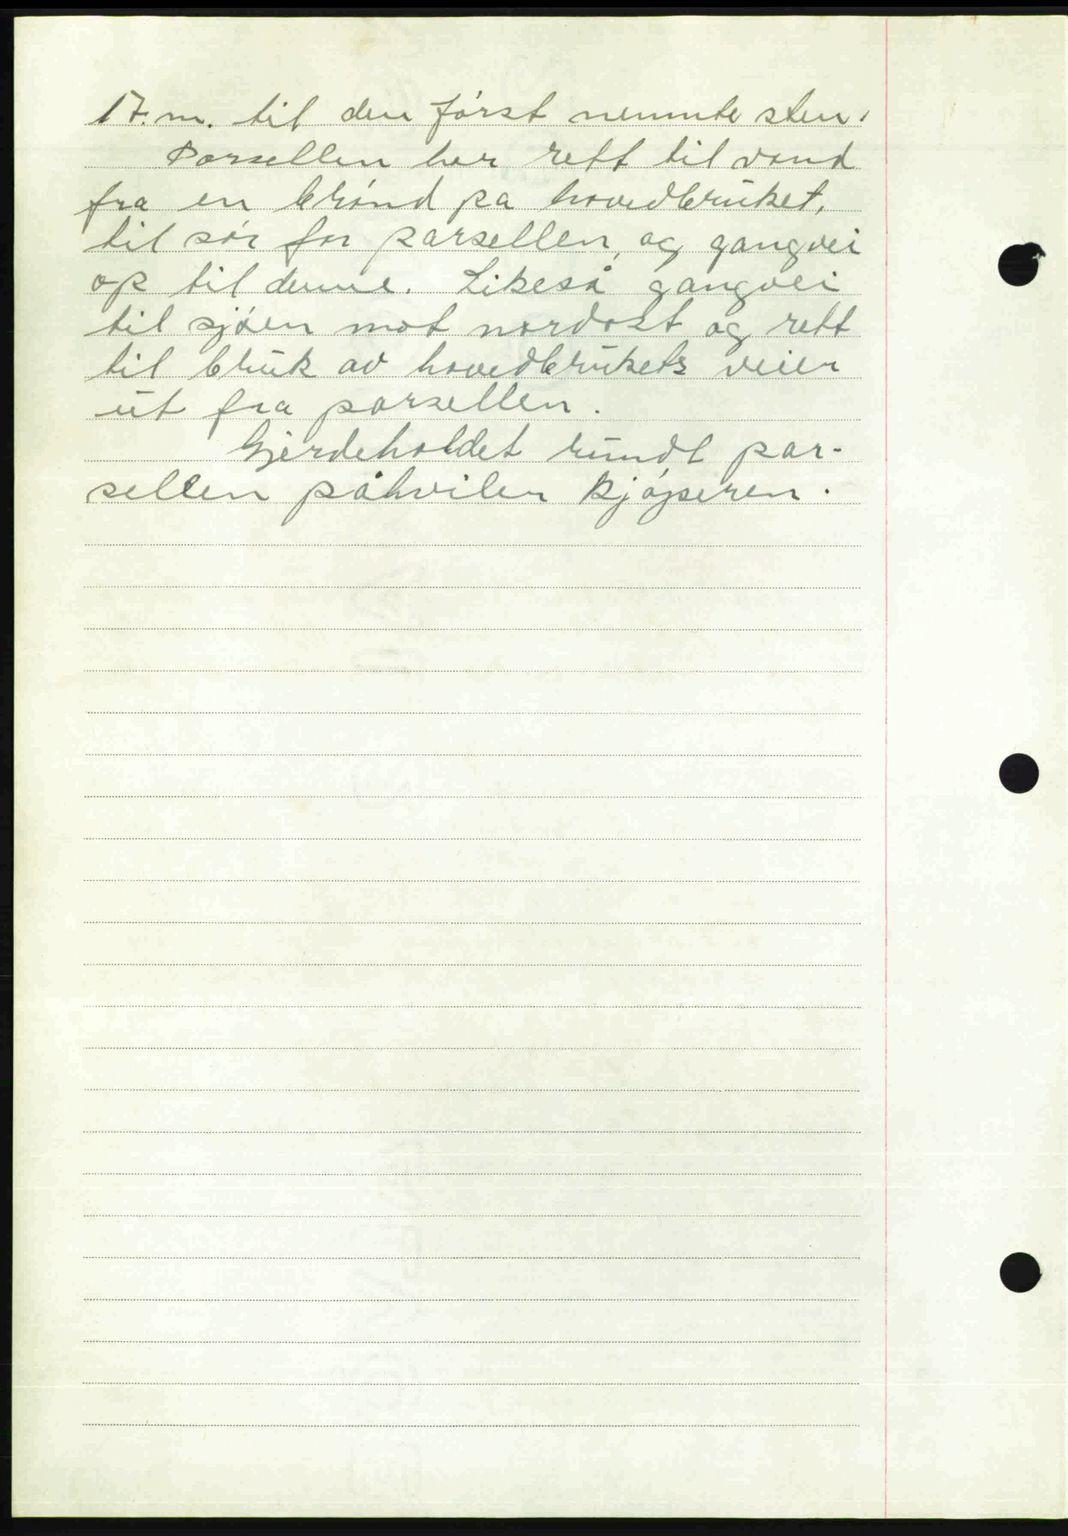 17.m. til den först nevnnte sten.
Parsellen har rett til vand
fra en brönd på hovedbruket,
til sör for parsellen, og gangvei
op til denne. Likeså gangvei
til sjöen mot nordost og rett
til bruk av hovedbrukets veier
ut fra parsellen.
Gjerdeholdet rundt par-
sellen påhviler kjöperen.